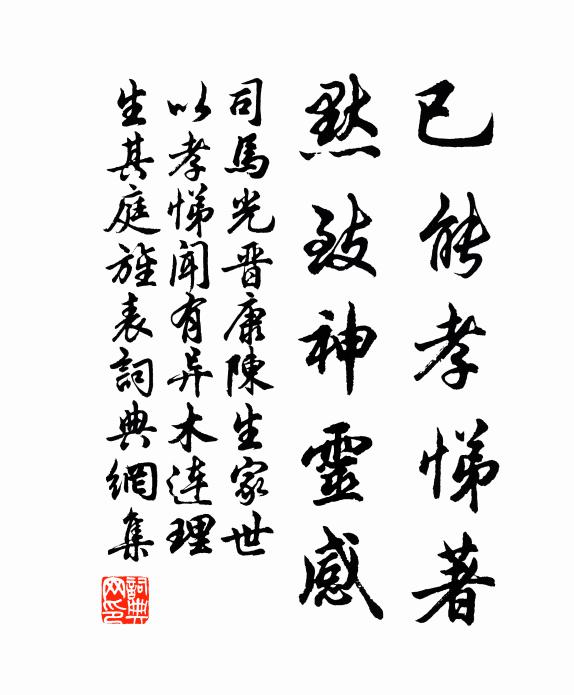 已能孝悌著
默致神靈感
司馬光晋康陳生家世
以孝悌闻有异木连理
生其庭旌表詞典網集
詞典网印